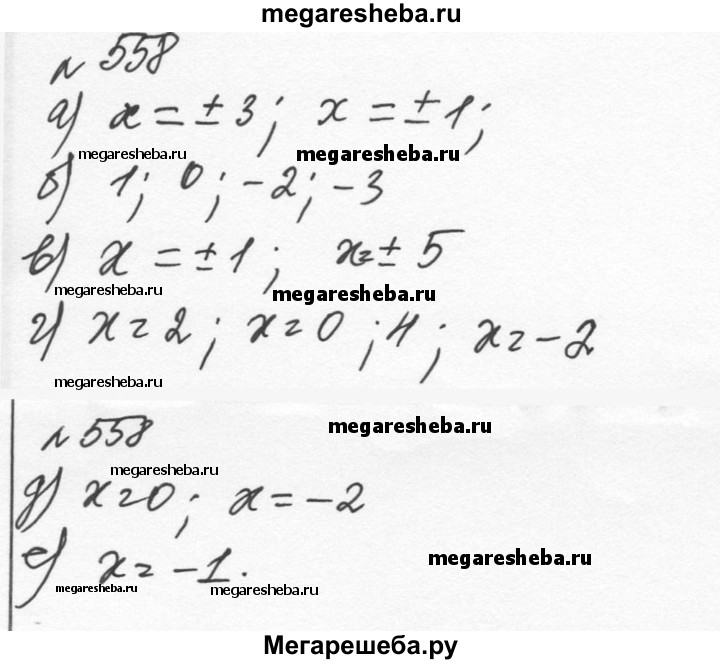 megaresheba.ru
№ 558
а) x = ± 3; x = ± 1;
megaresheba.ru
megaresheba.ru
б) 1; 0; -2; -3
в) x = ± 1; x = ± 5
megaresheba.ru
megaresheba.ru
г) x = 2; x = 0; 4; x = -2
megaresheba.ru
№ 558
megaresheba.ru
megaresheba.ru
д) x = 0; x = -2
е) x = -1.
megaresheba.ru
megaresheba.ru
megaresheba.ru
Мегарешеба.ру